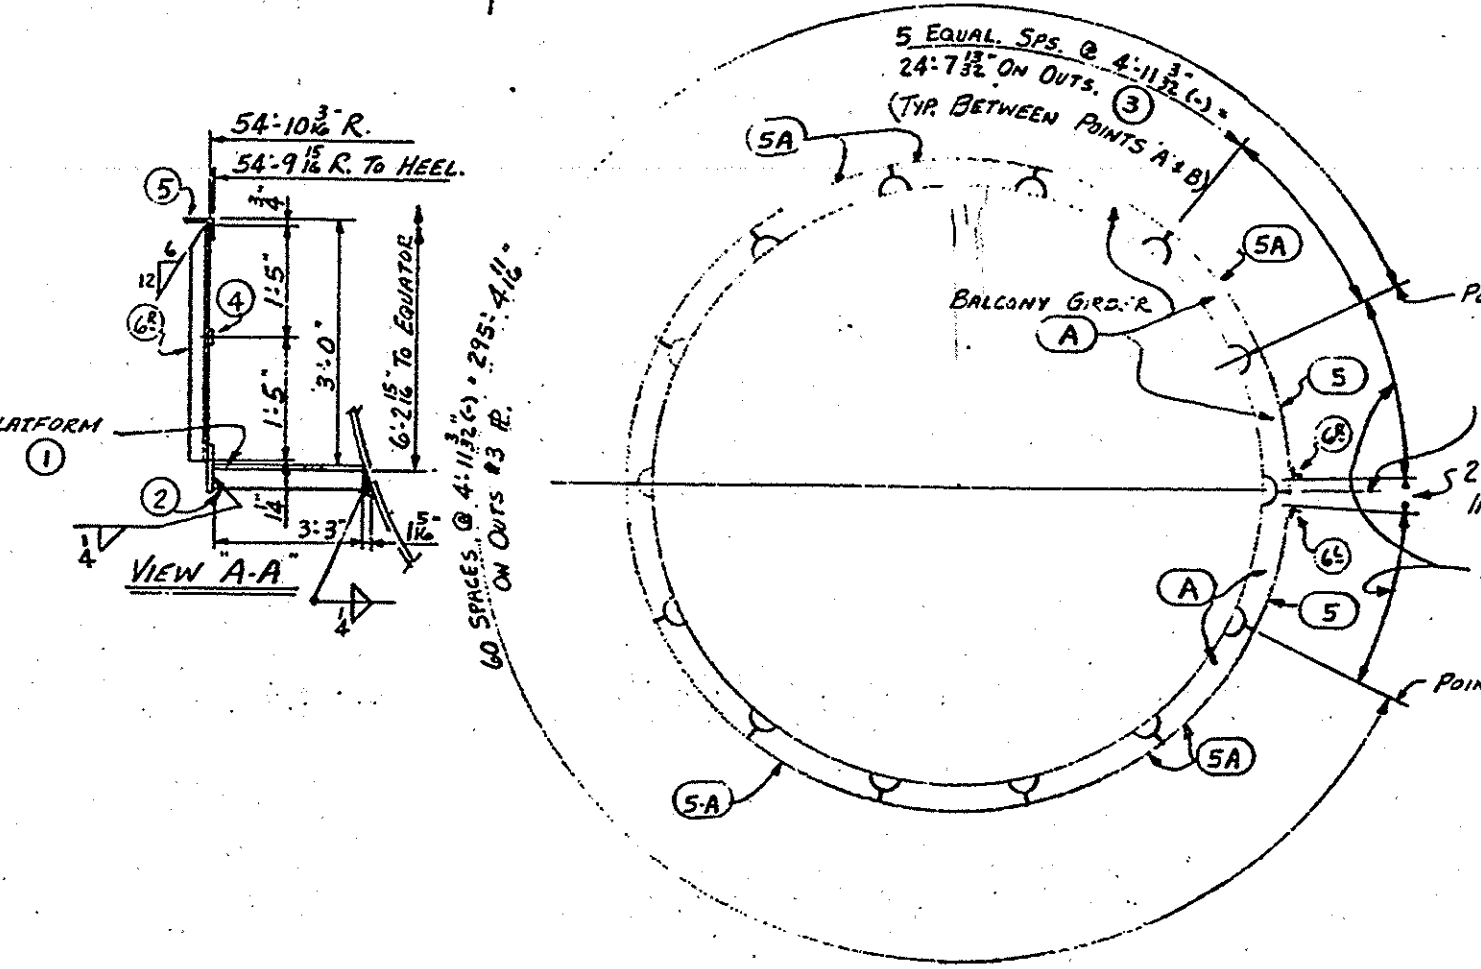 54'-10 3/16" R.
54'-9 15/16 R. TO HEEL.
5
3/4
6
12
6R
4
1'-5"
3'-0"
6'-2 15/16" TO EQUATOR
1'-5"
LATFORM
1
2
1/4"
3'-3"
1 5/16"
1/4
VIEW "A-A"
1/4
60 SPACES @ 4'-11 3/32"(-) = 295'-4 11/16"
ON OUTS #3 PL.
5 EQUAL. SPS. @ 4'-11 3/32"(-) =
24'-7 13/32" ON OUTS. 3
(TYP. BETWEEN POINTS A & B)
5A
5A
BALCONY GIRD.R
A
PO
5
6R
2
11
6L
A
5
POIN
5A
5-A